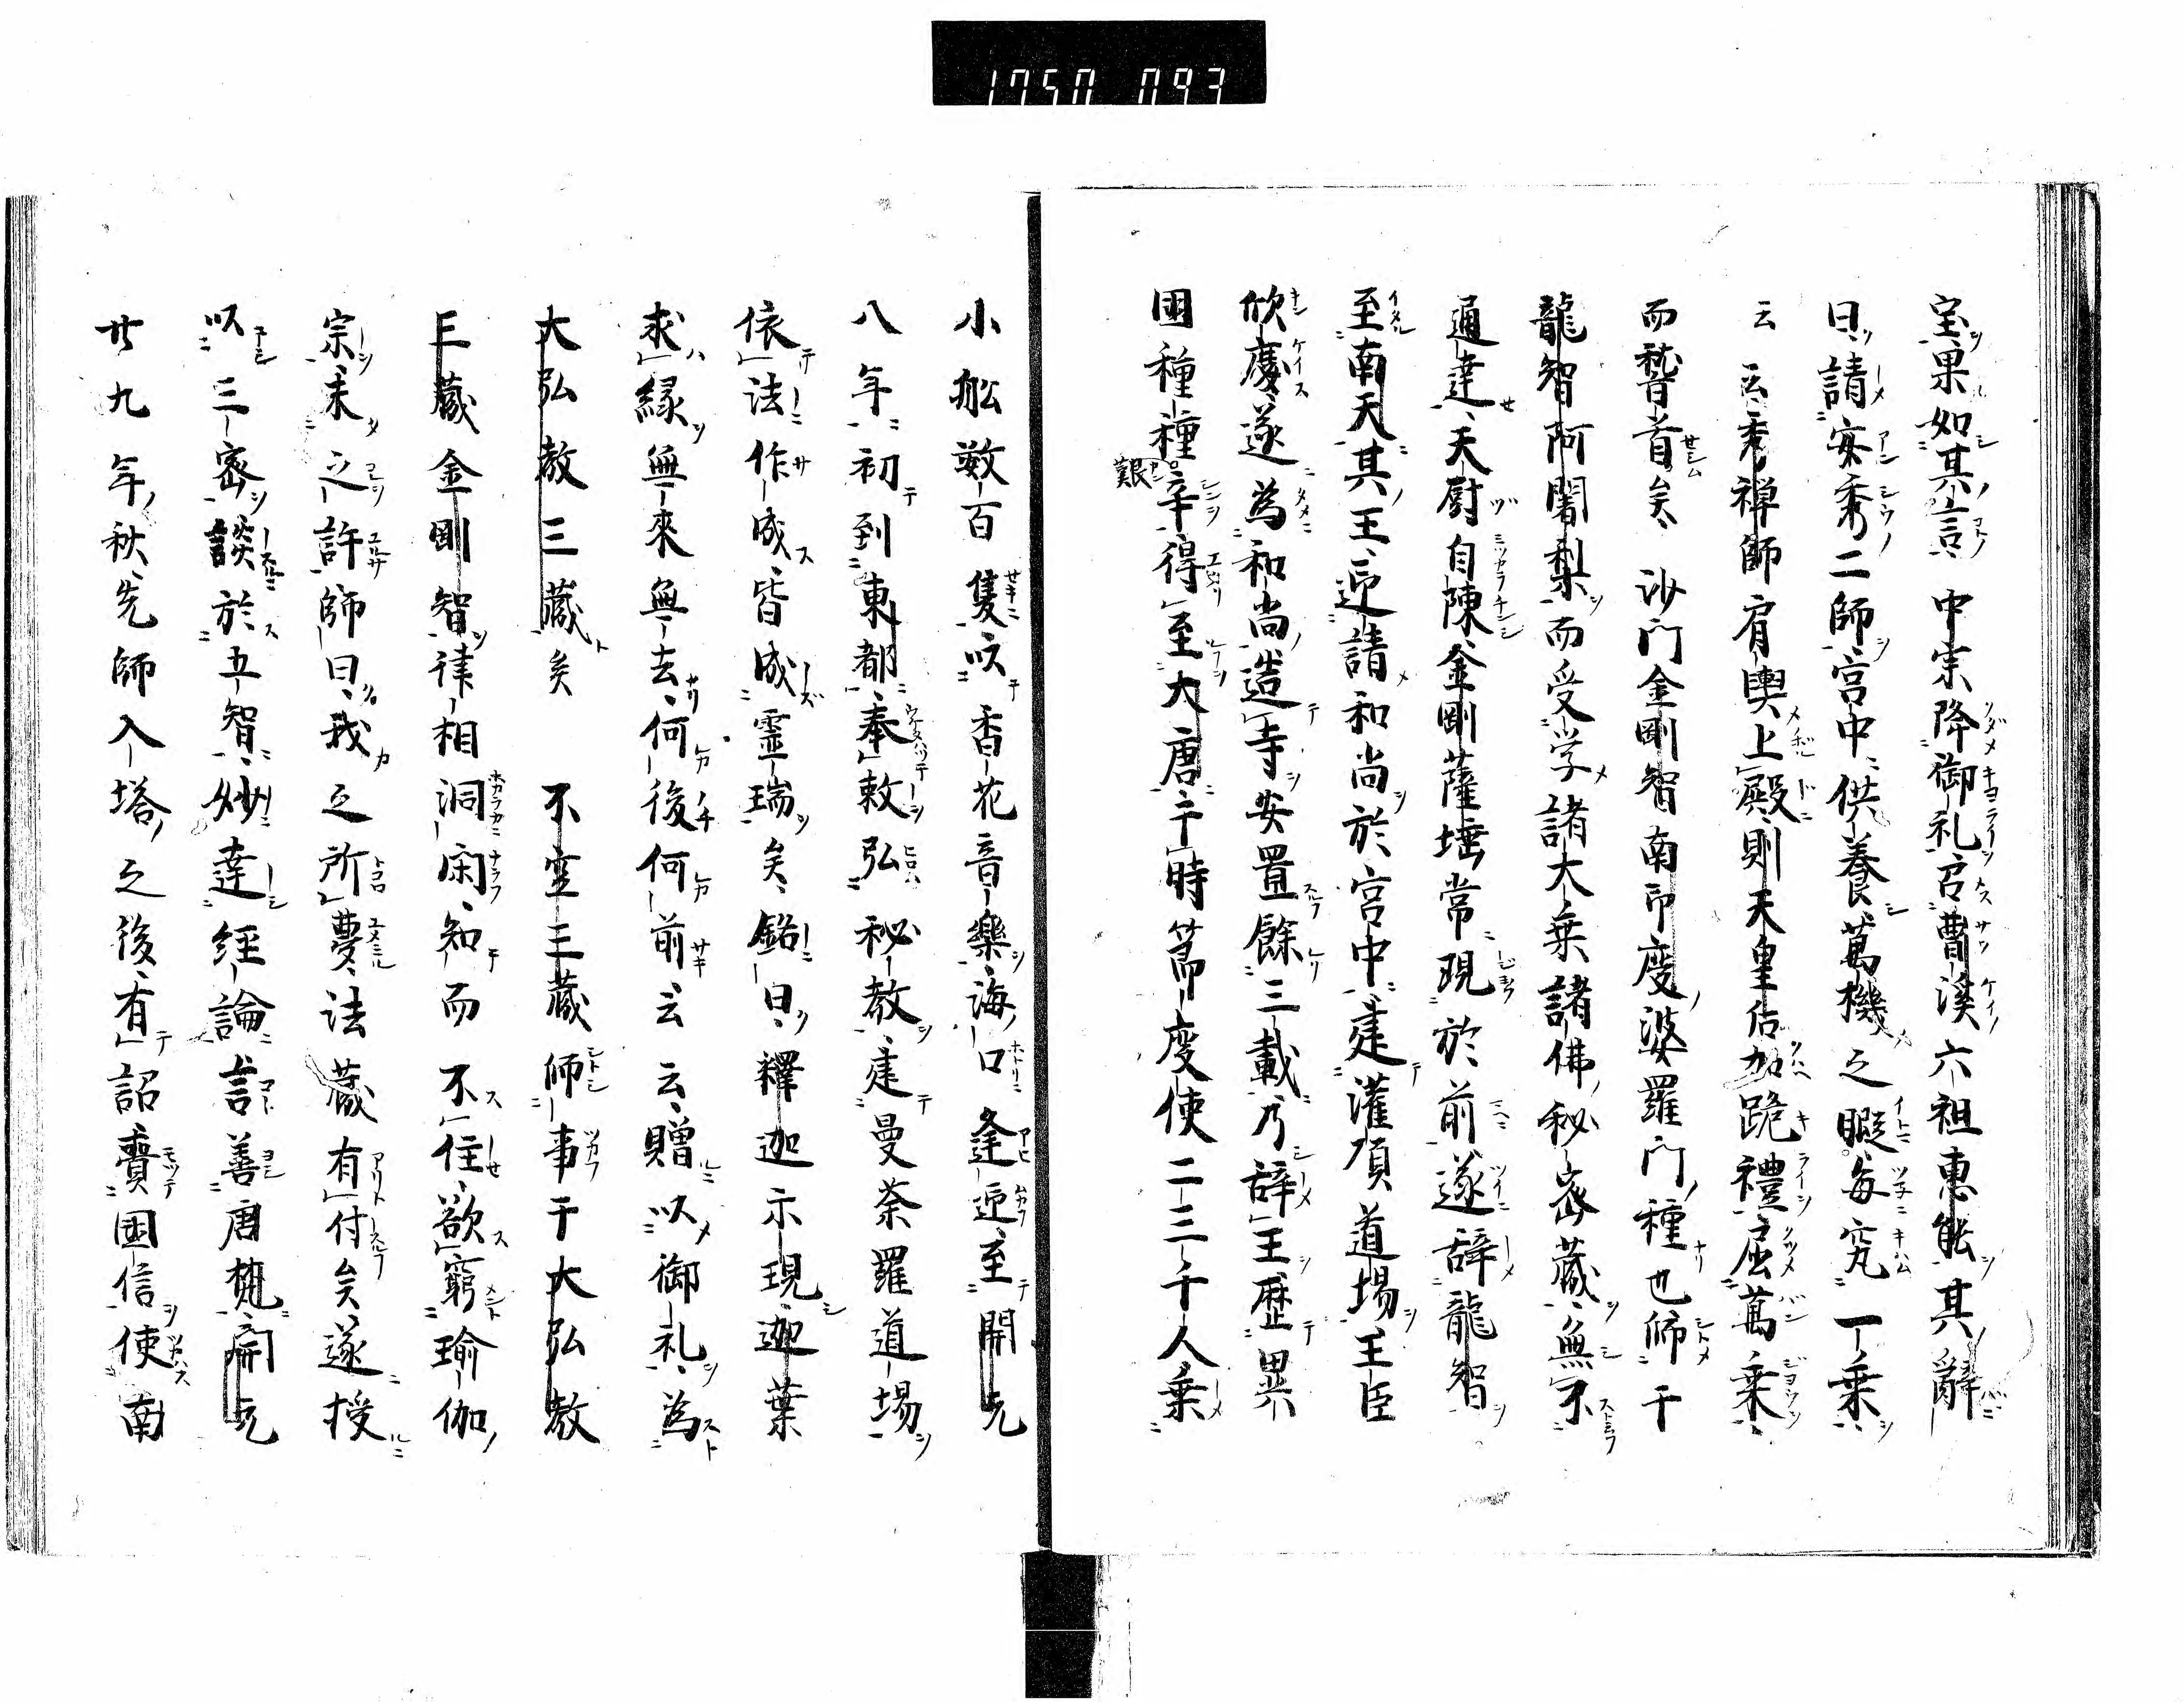 1750 093
宝果如其言中宗降御礼召曹溪六祖惠能其辭
曰請安秀二師宮中供養萬機之暇毎究一乗
云云秀禅師肩輿上殿則天皇后加跪禮屈萬乗
而稽首矣 沙門金剛智南印度婆羅門種也師于
龍智阿闍梨而受学諸大乗諸佛秘密蔵無不
通達天厨自陳金剛薩埵常現於前遂辞龍智
至南天其王迎請和尚於宮中建灌頂道場王臣
欣慶遂為和尚造寺安置餘三載乃辞王歴異
國種種艱辛得至大唐于時節度使二三千人乗
小舩數百隻以香花音樂海口逢迎至開元
八年初到東都奉敕弘秘教建曼荼羅道場
依法作成皆成霊瑞矣銘曰釋迦示現迦葉
求縁無來無去何後何前云云贈以御礼為
大弘教三藏矣 不空三藏師事于大弘教
三藏金剛智律相洞閑知而不住欲窮瑜伽
宗未之許師曰我之所夢法藏有付矣遂授
以三密談於五智妙達經論言善唐梵開元
廿九年秋先師入塔之後有詔賷國信使南